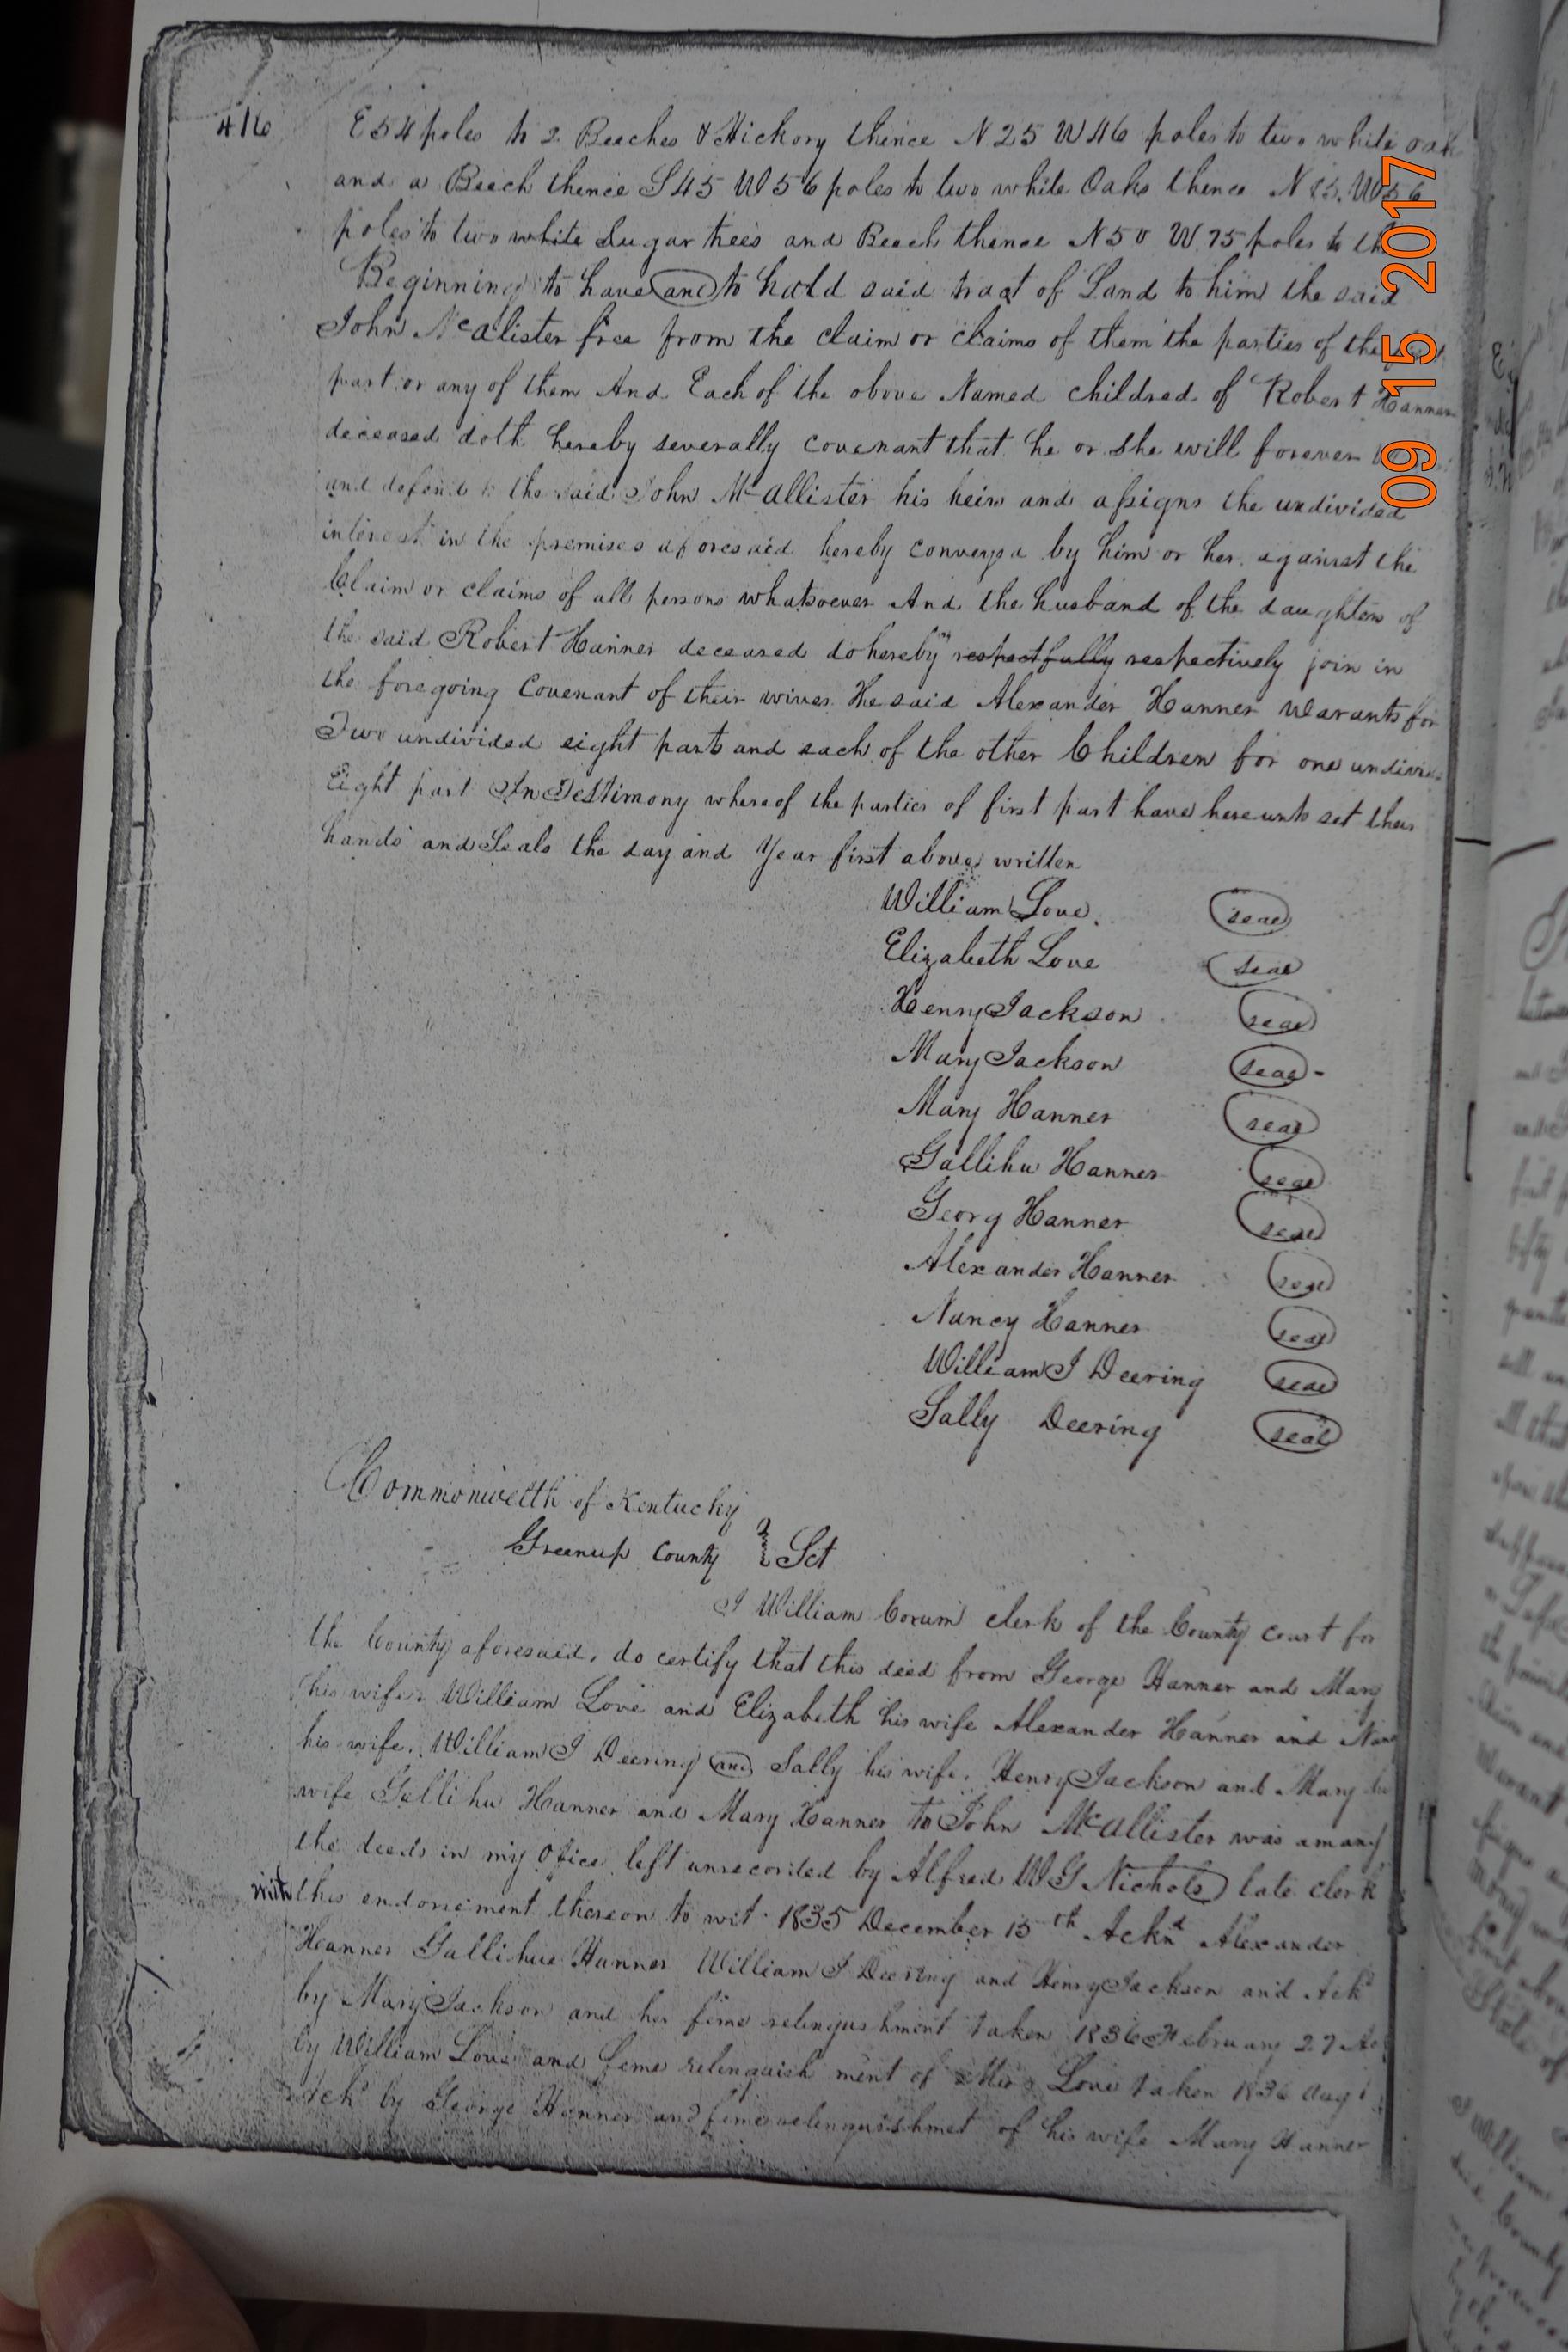 416
E 54 poles to 2 Beeches & Hickory thence N 25 W 46 poles to two white oak
and a Beech thence S 45 W 56 poles to two white Oaks thence N W 56
poles to two white Sugar trees and Beech thence N 50 W 75 poles to the
Beginning to have and to hold said tract of Land to him the said
John McAlister free from the claim or claims of them the parties of the
part or any of them And Each of the above Named childred of Robert Hanner
deceased doth hereby severally covenant that he or she will forever
and defend to the said John McAllister his heirs and assigns the undivided
interest in the premises aforesaid hereby conveyed by him or her against the
Claim or claims of all persons whatsoever And the husband of the daughters of
the said Robert Hanner deceased do hereby respectfully respectively join in
the foregoing Covenant of their wives The said Alexander Hanner Warants for
Two undivided eight parts and each of the other Children for one undivid
Eight part In Testimony whereof the parties of first part have hereunto set their
hands and Seals the day and Year first above written
William Love seal
Elizabeth Love seal
Henry Jackson seal
Mary Jackson seal
Mary Hanner seal
Gallihu Hanner seal
Georg Hanner seal
Alexander Hanner seal
Nancy Hanner seal
William J Deering seal
Sally Deering seal
Commonwelth of Kentucky
Greenup County } Sct
I William Corum clerk of the County court for
the County aforesaid, do certify that this deed from George Hanner and Mary
his wife William Love and Elizabeth his wife Alexander Hanner and Nan
his wife. William J Deering and Sally his wife. Henry Jackson and Mary his
wife Gallihu Hanner and Mary Hanner to John McAllister was among
the deeds in my Ofice left unrecorded by Alfred W G Nichols late clerk
with this endorsement thereon to wit 1835 December 15th Acknd Alexander
Hanner Gallihue Hanner William J Deering and Henry Jackson and Ackd
by Mary Jackson and her feme relinqushment taken 1836 February 27 Ac
by William Love and feme relinquishment of Love taken 1836 Augt
Ackd by George Hanner and feme relinquishmet of his wife Mary Hanner
09 15 2017